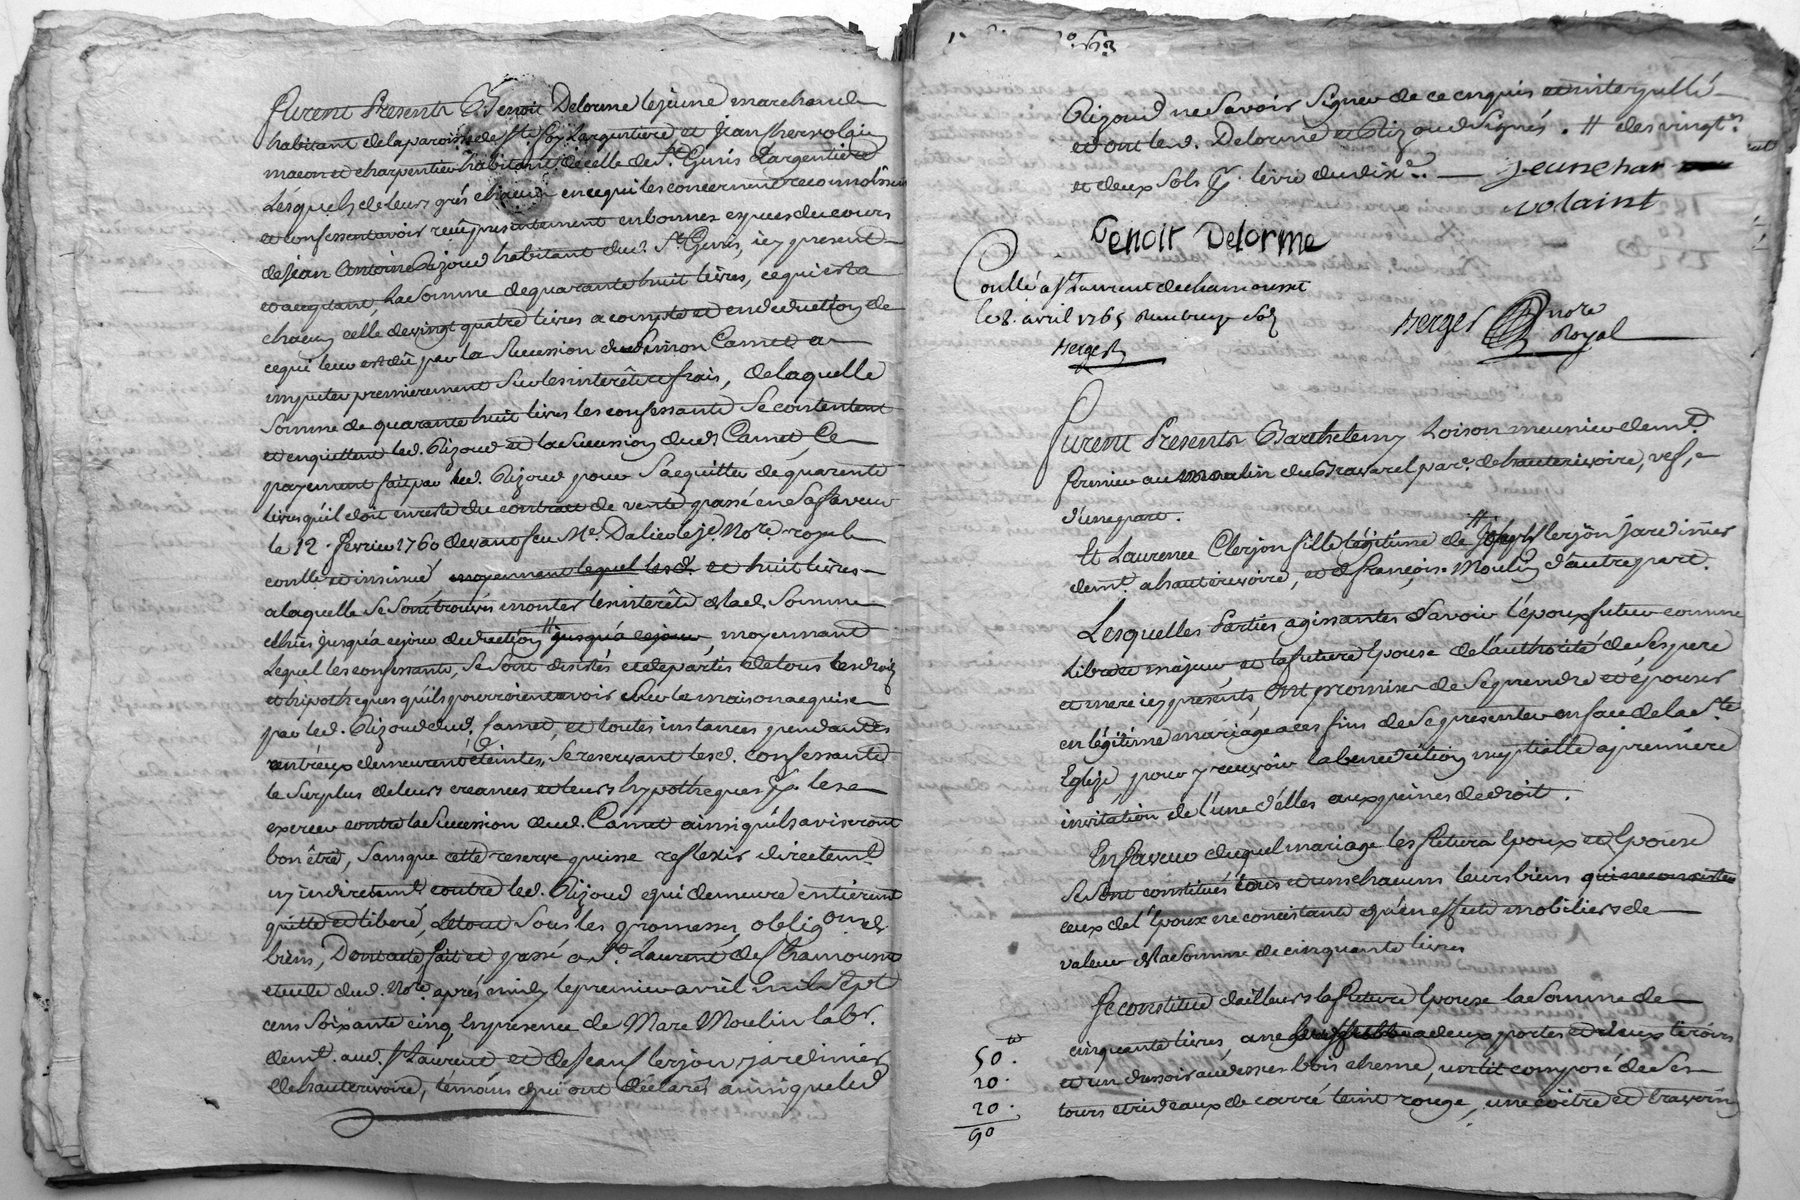 furent Presents Benoit Delorme lejeune marchand
habitant de la paroisse de Ste. foy Largentiere et Jean
macon et charpentier habitant de celle de St. Genis Largentiere
Lesquels de leurs grés en ce qui les concerne reconnoissent
et confessent avoir reçû presentement en bonnes especes du cours
de Jean Antoine Rizoud habitant dud. St. Genis, icy present
et acceptant, La Somme de quarante huit livres, ce qui est a
chacun celle de vingt quatre livres a compte et en deduction de
ce qui leur est dû par la Succession dud Simon Carnet a
imputer premierement Sur les interêts et frais, de laquelle
Somme de quarante huit livres les confessants Se contentent
et en quittent led. Rizoud et la Succession dud Carnet, Ce
payement fait par led. Rizoud pour S'acquitter de quarente
livres qu'il doit en reste du contrat de vente passé en Sa faveur
le 12. fevrier 1760 devant feu Me. Dalieu le je. Nore royal
conllé et insinué moyennant lequel lesd. et huit livres
a laquelle Se Sont trouvés monter les interêts de lad. Somme
echûs jusqu'a ce jour deduction // jusqu'a ce jour moyennant
Lequel les confessants, Se Sont desistés et departis de tous les droits
et hipotheques qu'ils pourroient avoir Sur la maison acquise
par led. Rizoud dud. Carnet, et toutes instances pendantes
entr'eux demeurent éteintes, Se reservant lesd. confessants
le Surplus de leurs creances et leurs hypotheques pr. les
exercer contre la Succession dud. Carnet ainsi qu'ils aviseront
bon être, Sans que cette reserve puisse reflexir directemt.
ny indirectemt. contre led. Rizoud qui demeure entierement
quitte et liberé, Le tout Sous les promesses, obligons. et
biens, Dont acte, fait et passé a St. Laurent de Chamousset
etude dud. Nore. aprés midy le premier avril mil Sept
cens Soixante cinq, En presence de Marc Moulin labr.
demt. aud. St Laurent et de Jean Clerjon jardinier
de hauterivoire, témoins qui ont déclaré ainsi que led
Rizoud ne Savoir Signer de ce enquis et interpellé
et ont led. Delorme et Signés. // des vingt
et deux Sols pr. livre du dixe..
jeunehar
volaint
Benoit Delorme
Conllé a St Laurent de chamousset
le 8. avril 1765 Sols
Berger
Berger nore
Royal
furent Presents Barthelemy Loison meunier demt.
fermier au moulin du Bravarel pare. de hauterivoire, vef,
d'une part.
Et Laurence Clerjon fille légitime de // Joseph Clerjon jardinier
demt. a hauterivoire, et de françoise Moulin d'autre part.
Lesquelles Parties agissantes Savoir l'époux futur comme
libre et majeur et la future Epouse de l'authorité de Ses pere
et mere icy présents, Ont promis de Se prendre et épouser
en légitime mariage a ces fins de Se presenter en face de la Ste
Eglise pour y recevoir la benediction nuptialle a premiere
invitation de l'une d'elles aux peines de droit.
En faveur duquel mariage les futurs Epoux et Epouse
Se Sont constitués tous et un chacuns leurs biens qui ne consistent
ceux de l'Epoux ne consistants qu'en effets mobiliers de
valeur de la Somme de cinquante livres
Se constitue d'ailleurs la future Epouse la Somme de
cinquante livres une a deux portes et deux tiroirs
et un dressoir au dessus bois chesne, un lit composé de Ses
tours et rideaux de carré teint rouge, une coëtre et traversin
50.tt
20.
20.
90